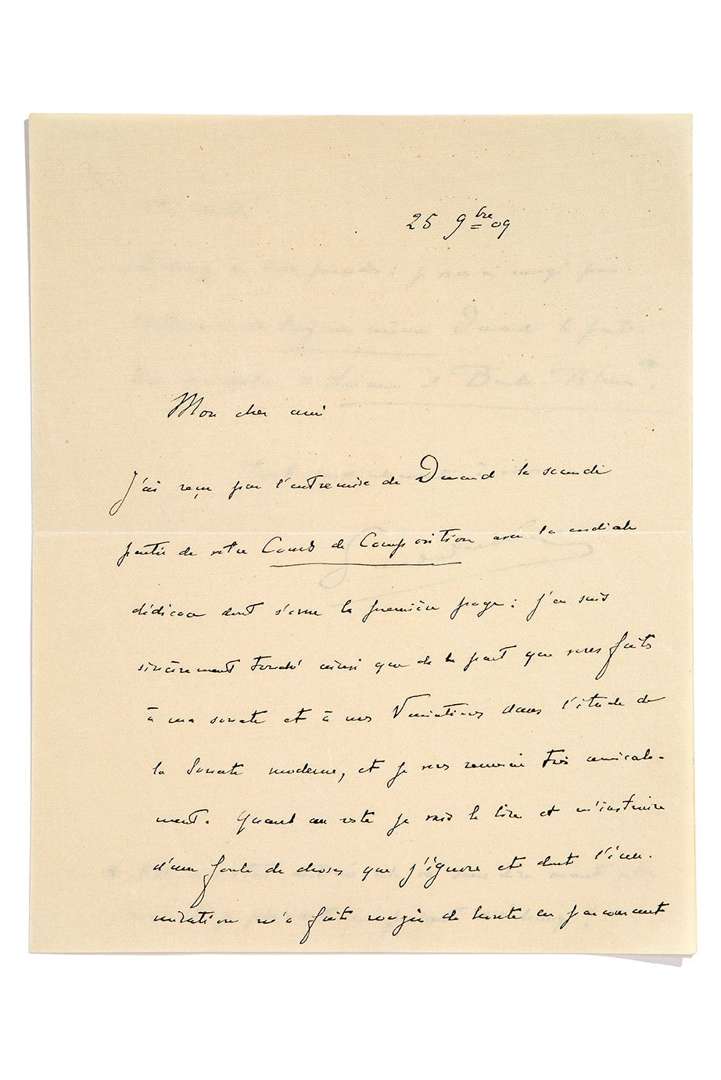 25 9bre 09
Mon cher ami
J'ai reçu par l'entremise de Durand la seconde
partie de votre Cours de Composition avec la cordiale
dédicace dont s'orne la première page : j'en suis
sincèrement touché ainsi que de la part que vous faites
à ma sonate et à mes Variations dans l'étude de
la Sonate moderne, et je vous remercie très amicale-
ment. Quant au reste je vais le lire et m'instruire
d'une foule de choses que j'ignore et dont l'énu-
mération m'a fait rougir de honte en parcourant